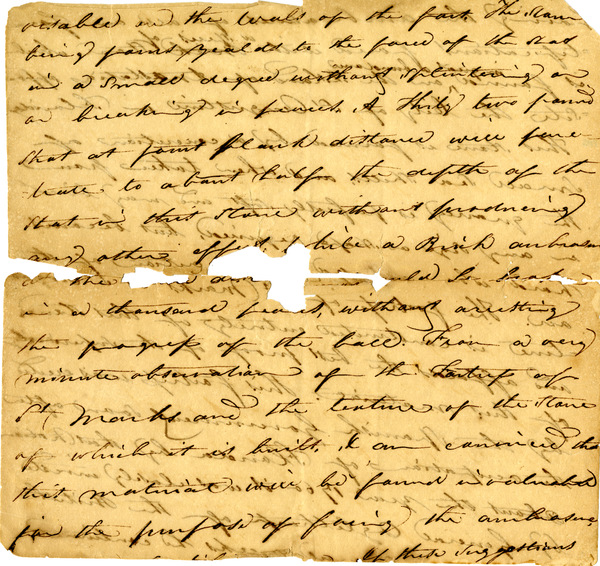 visable in the walls of the fort. The Stone
being porus yealds to the force of the shot
in a small degree without splintering or
or breaking in pieces. A thirty two pound
shot at point blank distance will pene-
trate to about half the depth of the
shot in this stone without producing
any other effect while a Brick embrasure
of the
in a thousand pieces, without arresting
the progress of the ball. From a very
minute observation of the Fortress of
St Marks and the texture of the stone
of which it is built. I am convinced that
this material will be found invaluable
for the purpose of facing the embrasure
of these suggestions